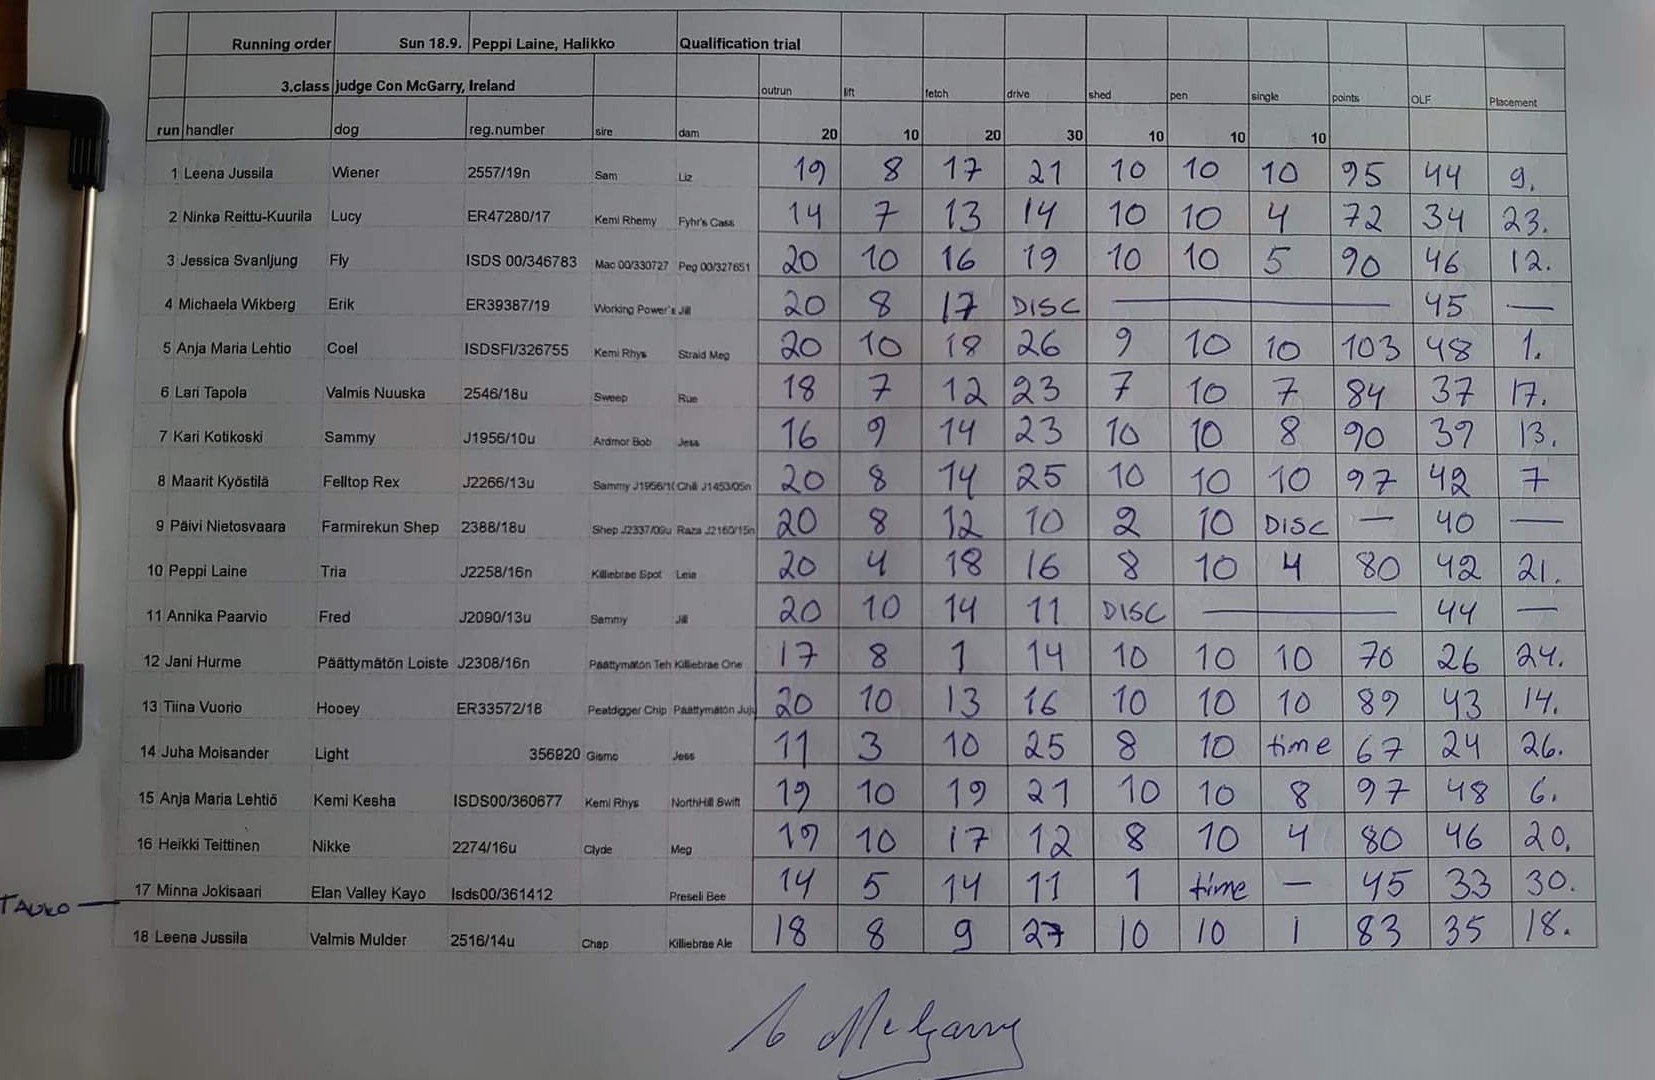 Running order Sun 18.9. Peppi Laine, Halikko Qualification trial
3.class judge Con McGarry, Ireland outrun lift fetch drive shed pen single points OLF Placement
run handler dog reg.number sire dam 20 10 20 30 10 10 10
1 Leena Jussila Wiener 2557/19n Sam Liz 19 8 17 21 10 10 10 95 44 9.
2 Ninka Reittu-Kuurila Lucy ER47280/17 Kemi Rhemy Fyhr's Cass 14 7 13 14 10 10 4 72 34 23.
3 Jessica Svanljung Fly ISDS 00/346783 Mac 00/330727 Peg 00/327651 20 10 16 19 10 10 5 90 46 12.
4 Michaela Wikberg Erik ER39387/19 Working Power's Jill 20 8 17 DISC — 45 —
5 Anja Maria Lehtio Coel ISDSFI/326755 Kemi Rhys Straid Meg 20 10 18 26 9 10 10 103 48 1.
6 Lari Tapola Valmis Nuuska 2546/18u Sweep Rue 18 7 12 23 7 10 7 84 37 17.
7 Kari Kotikoski Sammy J1956/10u Ardmor Bob Jess 16 9 14 23 10 10 8 90 39 13.
8 Maarit Kyöstilä Felltop Rex J2266/13u Sammy J1956/1( Chili J1453/05n 20 8 14 25 10 10 10 97 42 7
9 Päivi Nietosvaara Farmirekun Shep 2388/18u Shep J2337/09u Raza J2160/15n 20 8 12 10 2 10 DISC — 40 —
10 Peppi Laine Tria J2258/16n Killiebrae Spot Leia 20 4 18 16 8 10 4 80 42 21.
11 Annika Paarvio Fred J2090/13u Sammy Jill 20 10 14 11 DISC — 44 —
12 Jani Hurme Päättymätön Loiste J2308/16n Päättymätön Teh Killiebrae One 17 8 1 14 10 10 10 70 26 24.
13 Tiina Vuorio Hooey ER33572/18 Peatdigger Chip Päättymätön Juju 20 10 13 16 10 10 10 89 43 14.
14 Juha Moisander Light 356820 Gismo Jess 11 3 10 25 8 10 time 67 24 26.
15 Anja Maria Lehtiö Kemi Kesha ISDS00/360677 Kemi Rhys NorthHill Swift 19 10 19 21 10 10 8 97 48 6.
16 Heikki Teittinen Nikke 2274/16u Clyde Meg 19 10 17 12 8 10 4 80 46 20.
17 Minna Jokisaari Elan Valley Kayo Isds00/361412 Preseli Bee 14 5 14 11 1 time — 45 33 30.
TAUKO —
18 Leena Jussila Valmis Mulder 2516/14u Chap Killiebrae Ale 18 8 9 27 10 10 1 83 35 18.
McGarry